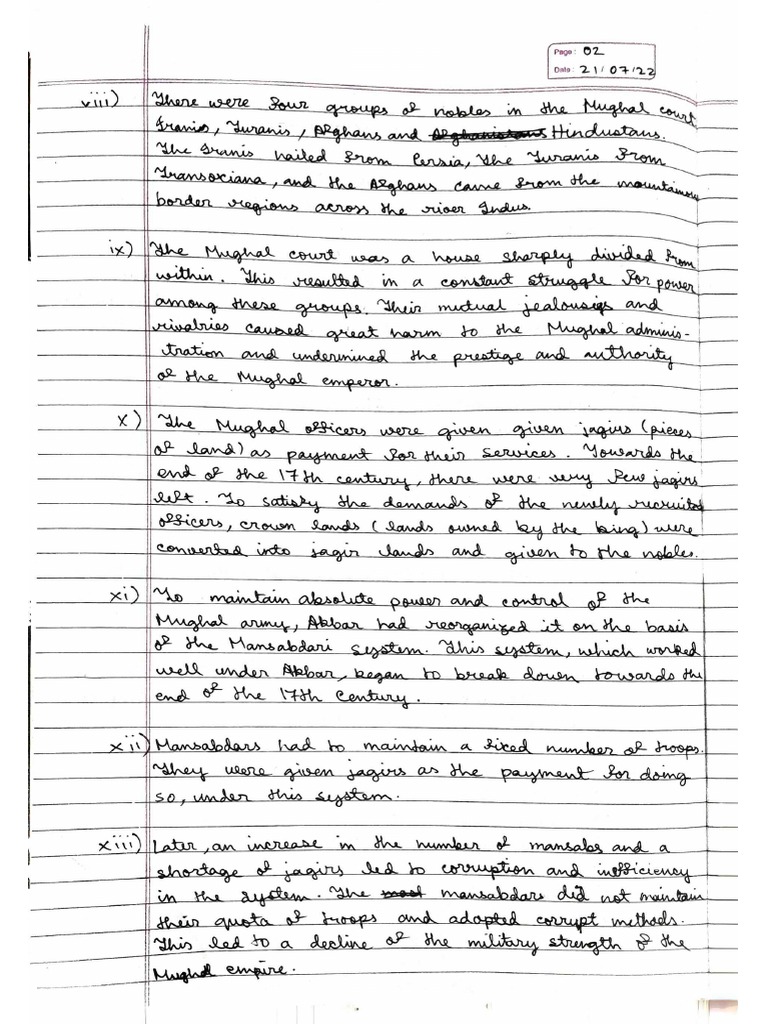 Page: 02
Date: 21/07/22
viii) There were four groups of nobles in the Mughal court
Iranis, Turanis, Afghans and Afghanistans Hindustans.
The Iranis hailed from Persia, The Turanis From
Transoxiana, and the Afghans came from the mountainous
border regions across the river Indus.
ix) The Mughal court was a house sharply divided from
within. This resulted in a constant struggle for power
among these groups. Their mutual jealousies and
rivalries caused great harm to the Mughal adminis-
tration and undermined the prestige and authority
of the Mughal emperor.
x) The Mughal officers were given given jagirs (pieces
of land) as payment for their services. Towards the
end of the 17th century, there were very few jagirs
left. To satisfy the demands of the newly recruited
officers, crown lands (lands owned by the king) were
converted into jagir lands and given to the nobles.
xi) To maintain absolute power and control of the
Mughal army, Akbar had reorganized it on the basis
of the Mansabdari system. This system, which worked
well under Akbar, began to break down towards the
end of the 17th Century.
xii) Mansabdars had to maintain a fixed number of troops.
They were given jagirs as the payment for doing
so, under this system.
xiii) Later, an increase in the number of mansabs and a
shortage of jagirs led to corruption and inefficiency
in the system. The most mansabdars did not maintain
their quota of troops and adopted corrupt methods.
This led to a decline of the military strength of the
Mughal empire.